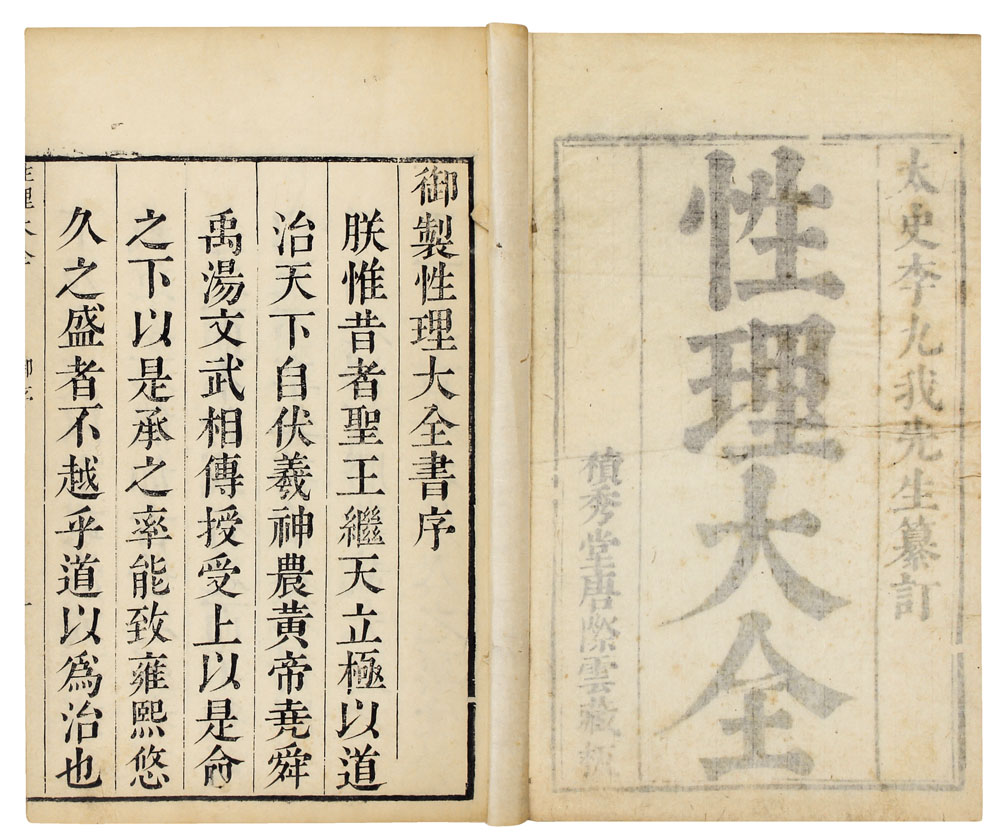 太史李九我先生纂訂
性理大全
積秀堂唐際雲藏板
御製性理大全書序
朕惟昔者聖王繼天立極以道
治天下自伏羲神農黃帝堯舜
禹湯文武相傳授受上以是命
之下以是承之率能致雍熙悠
久之盛者不越乎道以爲治也
性理大全